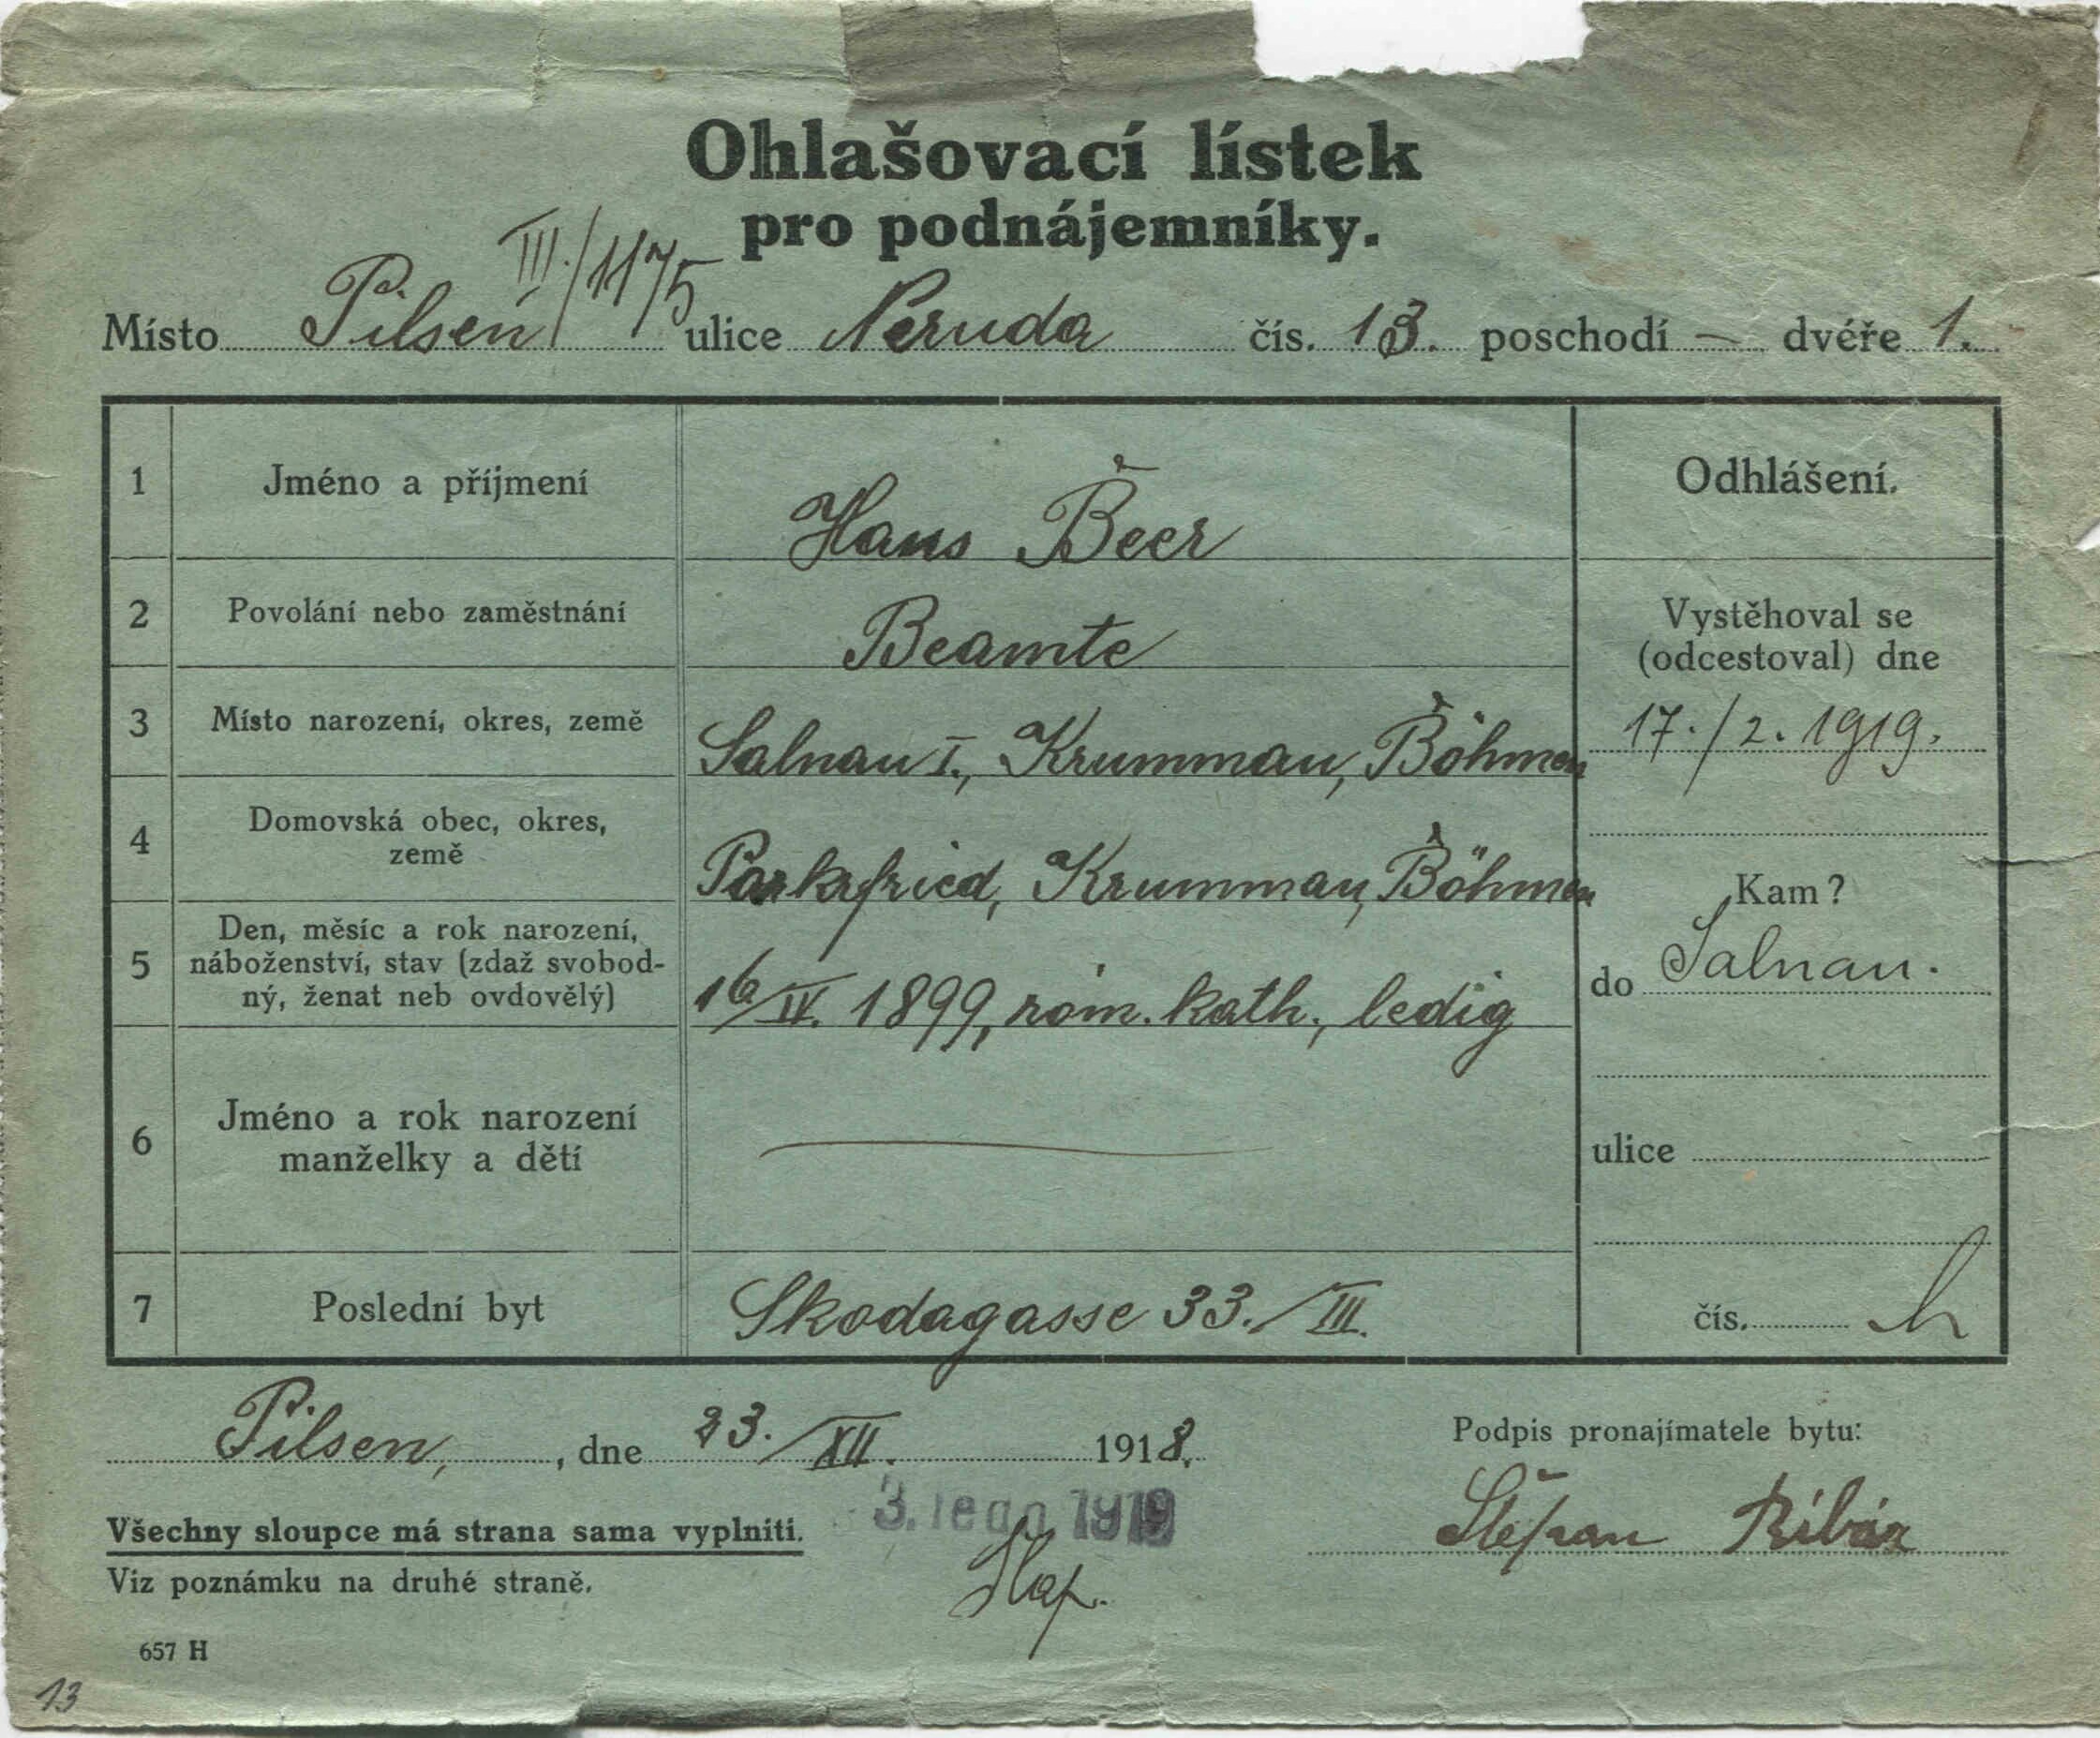 Ohlašovací lístek
pro podnájemníky.
III./1175
Místo Pilsen ulice Neruda čís. 13. poschodí — dvéře 1.
1 Jméno a příjmení Hans Beer
Odhlášení.
2 Povolání nebo zaměstnání Beamte
Vystěhoval se
(odcestoval) dne
17./2. 1919.
3 Místo narození, okres, země Salnau I., Krummau, Böhmen
4 Domovská obec, okres,
země
Parkfried, Krummau, Böhmen
Kam?
do Salnau.
5 Den, měsíc a rok narození,
náboženství, stav (zdaž svobod-
ný, ženat neb ovdovělý)
16/IV. 1899, röm. kath., ledig
6 Jméno a rok narození
manželky a dětí
ulice
7 Poslední byt Skodagasse 33./III.
čís.
Pilsen, , dne 23./XII. 1918.
Podpis pronajímatele bytu:
Štefan
3. ledn 1919
Všechny sloupce má strana sama vyplniti.
Viz poznámku na druhé straně.
657 H
13